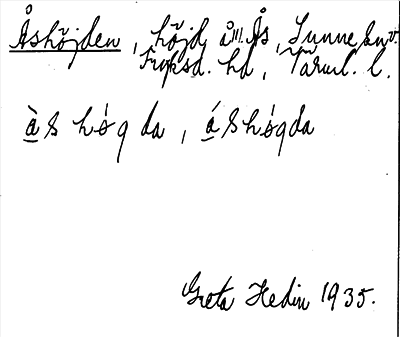 Åshöjden, höjd å Ås, Sunne sn
Fryksd. hd, Värml. l.
às hǿq da, áshǿqda
Greta Hedin 1935.